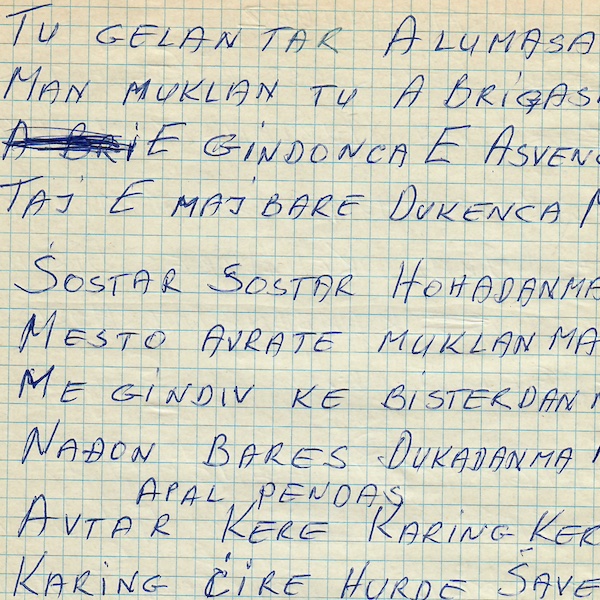 TU GELAN TAR A LUMASA
MAN MUKLAN TU A BRIGAS
E GINDONCA E ASVENC
TAJ E MAJ BARE DUKENCA
ŠOSTAR SOSTAR HOHADANMA
MESTO AVRATE MUKLAN MA
ME GINDIV KE BISTERDAN
NAĐON BARES DUKADANMA
APAL PENDAS
AVTAR KERE KARING KER
KARING ČIRE HURDE ŠAVE